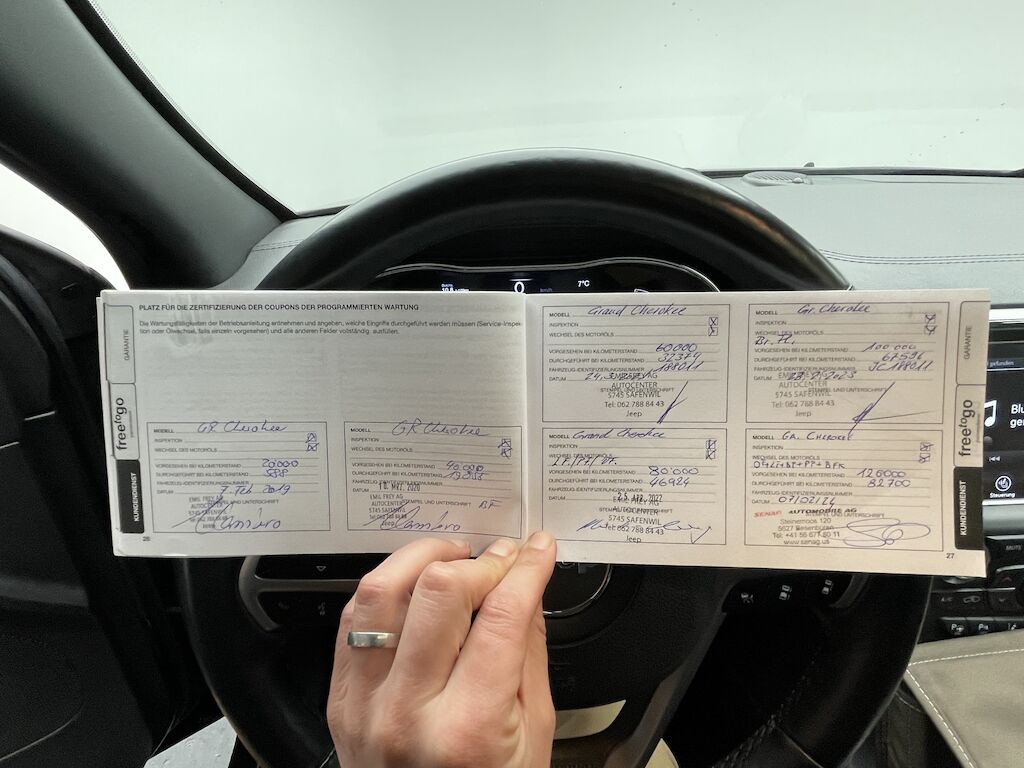 7°C
PLATZ FÜR DIE ZERTIFIZIERUNG DER COUPONS DER PROGRAMMIERTEN WARTUNG
Die Wartungsfälligkeiten der Betriebsanleitung entnehmen und angeben, welche Eingriffe durchgeführt werden müssen (Service-Inspek-
tion oder Ölwechsel, falls einzeln vorgesehen) und alle anderen Felder vollständig, ausfüllen.
GARANTIE
freetogo
KUNDENDIENST
MODELL GR Cherokee
INSPEKTION
WECHSEL DES MOTORÖLS
VORGESEHEN BEI KILOMETERSTAND 20'000
DURCHGEFÜHRT BEI KILOMETERSTAND
FAHRZEUG-IDENTIFIZIERUNGSNUMMER
DATUM 7. Feb 2019
EMIL FREY AG
5745 SAFENWIL
26
MODELL GR Cherokee
INSPEKTION
WECHSEL DES MOTORÖLS
VORGESEHEN BEI KILOMETERSTAND 40'000
DURCHGEFÜHRT BEI KILOMETERSTAND
FAHRZEUG-IDENTIFIZIERUNGSNUMMER
DATUM 10. MRZ. 2020
EMIL FREY AG
AUTOCENTER
5745 SAFENWIL
MODELL Grand Cherokee
INSPEKTION
WECHSEL DES MOTORÖLS
VORGESEHEN BEI KILOMETERSTAND 60000
DURCHGEFÜHRT BEI KILOMETERSTAND 32374
FAHRZEUG-IDENTIFIZIERUNGSNUMMER 188011
DATUM
AUTOCENTER
STEMPEL UND UNTERSCHRIFT
5745 SAFENWIL
Tel: 062 788 84 43
Jeep
MODELL Grand Cherokee
INSPEKTION
WECHSEL DES MOTORÖLS
VORGESEHEN BEI KILOMETERSTAND 80'000
DURCHGEFÜHRT BEI KILOMETERSTAND 46924
FAHRZEUG-IDENTIFIZIERUNGSNUMMER
DATUM
EMIL FREY AG
AUTOCENTER
5745 SAFENWIL
Tel: 062 788 84 43
Jeep
MODELL Gr. Cherokee
INSPEKTION
WECHSEL DES MOTORÖLS
Br. Fl.
VORGESEHEN BEI KILOMETERSTAND 100'000
DURCHGEFÜHRT BEI KILOMETERSTAND 67596
FAHRZEUG-IDENTIFIZIERUNGSNUMMER JC188011
DATUM
AUTOCENTER
STEMPEL UND UNTERSCHRIFT
5745 SAFENWIL
Tel: 062 788 84 43
Jeep
MODELL GR. CHEROKEE
INSPEKTION
WECHSEL DES MOTORÖLS
VORGESEHEN BEI KILOMETERSTAND 120000
DURCHGEFÜHRT BEI KILOMETERSTAND 82700
FAHRZEUG-IDENTIFIZIERUNGSNUMMER
DATUM 07/02/24
AUTOMOBILE AG
STEMPEL UND UNTERSCHRIFT
Steinemoos 120
5627 Besenbüren
www.senag.us
27
GARANTIE
freetogo
KUNDENDIENST
Steuerung
MUTE